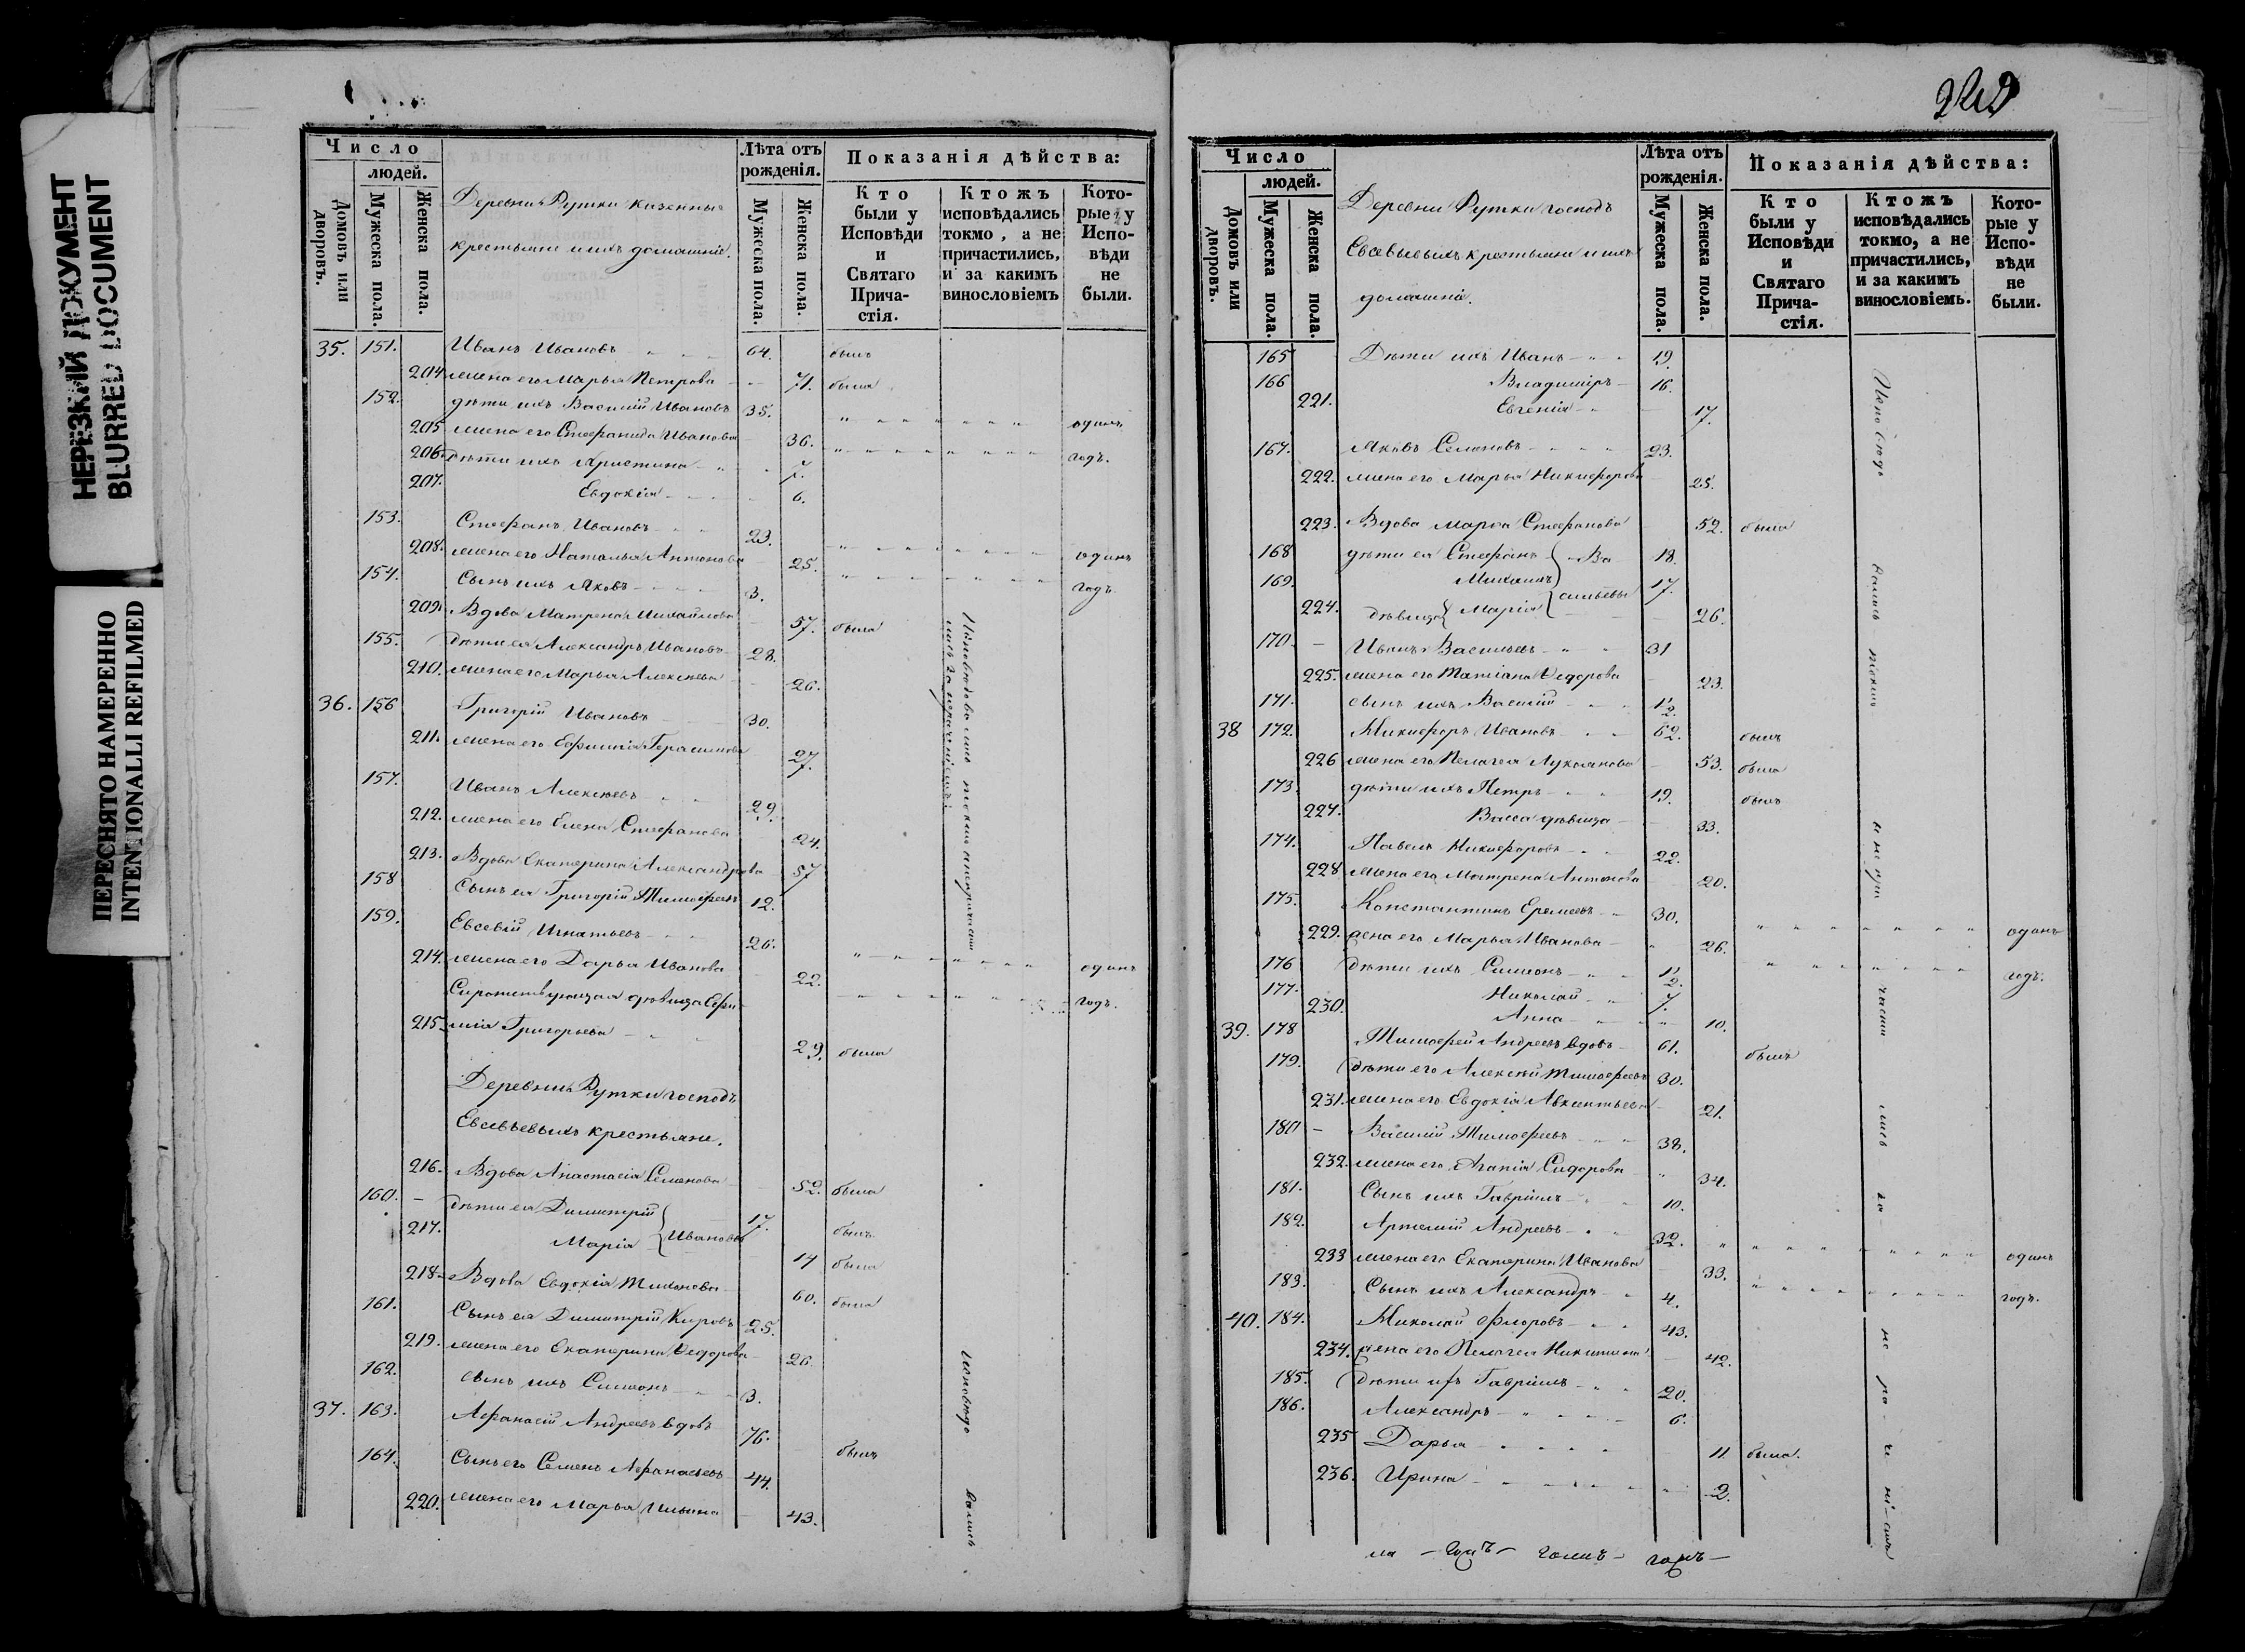 НЕРЕЗКИЙ ДОКУМЕНТ
BLURRED DOCUMENT
ПЕРЕСНЯТО НАМЕРЕННО
INTENTIONALLI REFILMED
Число
людей.
Домовъ или дворовъ.
Мужеска пола.
Женска пола.
Деревни Рутки казенные
крестьяне и ихъ домашніе.
Лѣта отъ рожденія.
Мужеска пола.
Женска пола.
Показанія дѣйства:
Кто были у Исповѣди и Святаго Прича-стія.
Ктожъ исповѣдались токмо, а не причастились, и за какимъ винословіемъ
Кото-рые у Испо-вѣди не были.
35. 151. Иванъ Ивановъ 64. былъ
204 жена его Марья Петрова 71. была
152. дѣти ихъ Василій Ивановъ 35.
205 жена его Стефанида Иванова 36. одинъ
206. дѣти ихъ Христина 7. годъ.
207. Евдокія 6.
153. Стефанъ Ивановъ 23.
208. жена его Наталья Антонова 25. одинъ
154. Сынъ ихъ Яковъ 3. годъ
209. Вдова Матрена Михайлова 57. была
155. дѣти ея Александръ Ивановъ 28.
210. жена его Марья Алексеева 26.
36. 156 Григорій Ивановъ 30.
211. жена его Ефимія Герасимова 27.
157. Иванъ Алексеевъ 29.
212. жена его Елена Стефанова 24.
213. Вдова Екатерина Александрова 57
158 Сынъ ея Григорій Тимофеевъ 12.
159. Евсевій Игнатьевъ 26.
214. жена его Дарья Иванова 22. одинъ
Сиротствующая дѣвица Ефи- годъ.
215. мія Григорьева 29. была
Деревни Рутки господъ
Евсевьевыхъ крестьяне.
216. Вдова Анастасія Семенова 52. была
160. дѣти ея Димитрій 17. былъ
217. Марія Ивановы 14 была
218. Вдова Евдокія Тихонова 60. была
161. Сынъ ея Димитрій Кировъ 25.
219. жена его Екатерина Ѳедорова 26.
162. сынъ ихъ Симеонъ 3.
37. 163. Афанасій Андреевъ вдовъ 76. былъ
164. Сынъ его Семенъ Афанасьевъ 44.
220. жена его Марья Ильина 43.
Исповѣдовались токмо а не причасти
лись за нераченіемъ.
исповѣдо вались
Число
людей.
Домовъ или дворовъ.
Мужеска пола.
Женска пола.
Деревни Рутки господъ
Евсевьевыхъ крестьяне и ихъ
домашніе.
Лѣта отъ рожденія.
Мужеска пола.
Женска пола.
Показанія дѣйства:
Кто были у Исповѣди и Святаго Прича-стія.
Ктожъ исповѣдались токмо, а не причастились, и за какимъ винословіемъ.
Кото-рые у Испо-вѣди не были.
165 Дѣти ихъ Иванъ 19.
166 Владиміръ 16.
221. Евгенія 17.
167. Яковъ Семеновъ 23.
222. жена его Марья Никифорова 25.
223. Вдова Марѳа Стефанова 52. была
168 дѣти ея Стефанъ Ва 18.
169. Михаилъ сильевы 17.
224. дѣвица Марія 26.
170. Иванъ Васильевъ 31
225. жена его Татіана Ѳедорова 23.
171. сынъ ихъ Василій 1/2.
38 172. Никифоръ Ивановъ 62. былъ
226 жена его Пелагея Лукоянова 53. была
173 дѣти ихъ Петръ 19. былъ
227. Васса дѣвица 33.
174. Павелъ Никифоровъ 22.
228 жена его Матрена Антонова 20.
175. Константинъ Еремеевъ 30.
229. жена его Марья Иванова 26. одинъ
176 дѣти ихъ Симеонъ 1/2. годъ.
177. Николай 7.
230. Анна 10.
39. 178 Тимофей Андреевъ вдовъ 61. былъ
179. дѣти его Алексѣй Тимофеевъ 30.
231. жена его Евдокія Авксентьева 21.
180 Василій Тимофеевъ 38.
232. жена его Агапія Сидорова 34.
181. Сынъ ихъ Гавріилъ 10.
182. Артемій Андреевъ 32.
233 жена его Екатерина Иванова 33. одинъ
183. Сынъ ихъ Александръ 4. годъ.
40. 184. Николай Флоровъ 43.
234. жена его Пелагея Никитина 42.
185. Дѣти ихъ Гавріилъ 20.
186. Александръ 6.
235 Дарья 11. была.
236. Ирина 2.
Исповѣдо вались токмо а не при части лись за не ра че ні емъ